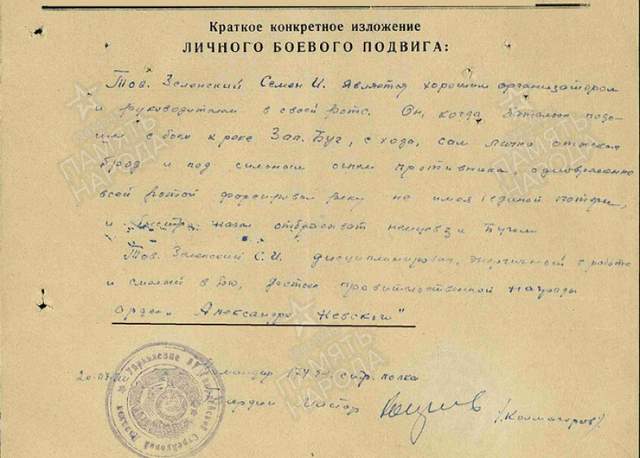 Краткое конкретное изложение
ЛИЧНОГО БОЕВОГО ПОДВИГА:
Тов. Зеленский Семен И. является хорошим организатором
и руководителем в своей роте. Он, когда батальон подо-
шел с боем к реке Зап. Буг, с хода, сам лично отыскал
брод и под сильным огнем противника, одновременно
всей ротой форсировал реку не имея единой потери,
и начал отбрасывать немцев за Бугом
Тов. Зеленский С. И. дисциплинирован, энергичный в работе
и смелый в бою, достоин правительственной награды
орден "Александра Невского"
Командир стр. полка
гвардии майор
ПАМЯТЬ НАРОДА